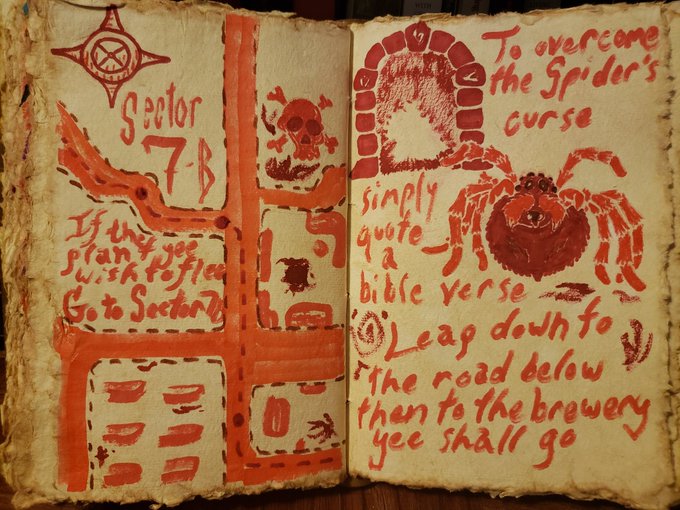 Sector
7-B
If the
plant yee
wish to flee
Go to Sector 7b
To overcome
the Spider's
curse
simply
quote
a
bible verse
Leap down to
the road below
then to the brewery
yee shall go